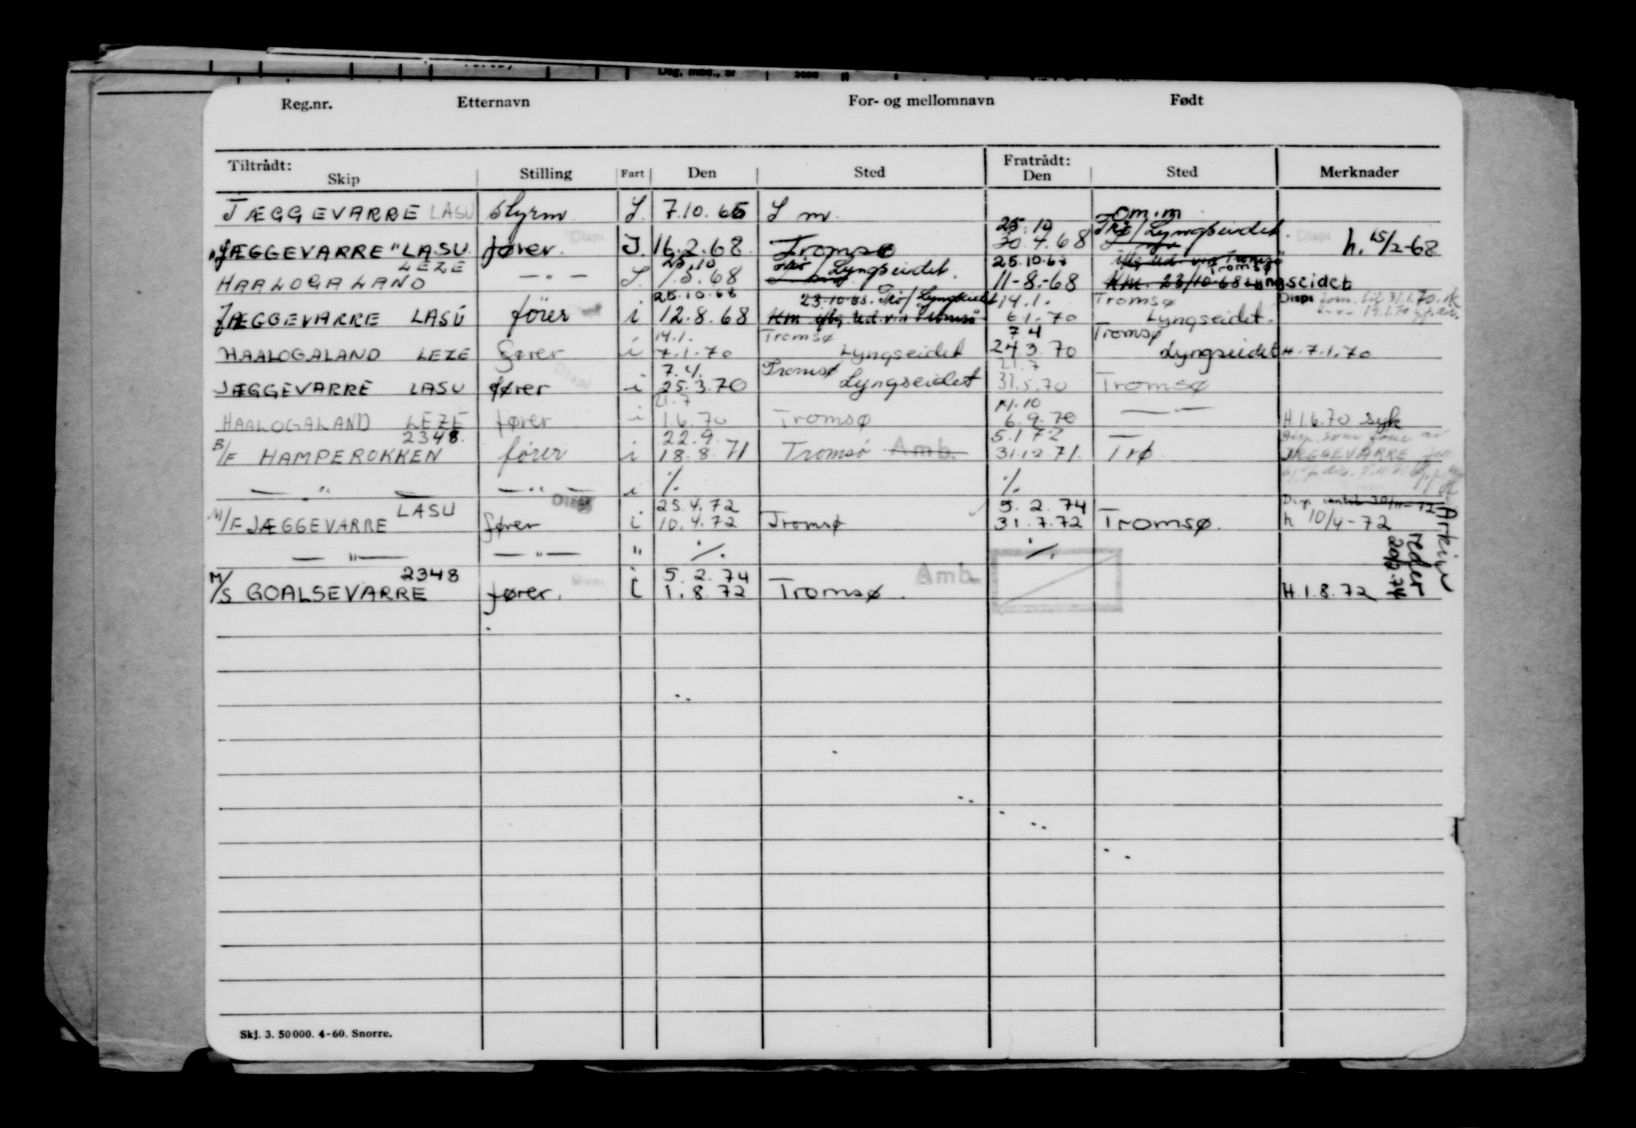 Reg.nr. Etternavn For- og mellomnavn Født
Tiltrådt: Skip Stilling Fart Den Sted Fratrådt: Den Sted Merknader
JÆGGEVARRE LASU styrm 7.10.66
om.m
25.10 Trø/Lyngseidet
"JÆGGEVARRE" LASU fører. Dispi 16.2.68 Tromsø 30.4.68 Dispi h. 15/2-68
LEZE 25.10 Trø/Lyngseidet. 25.10.68 Tromsø
HAALOGALAND — " — 1.5.68 11-8-68 Lyngseidet
25.10.68 23.10.68. Trø/Lyngseidet 14.1. Tromsø Dispi
JÆGGEVARRE LASU fører i 12.8.68 6.1.70 Lyngseidet.
14.1. Tromsø 7.4 Tromsø
HAALOGALAND LEZE fører i 7.1.70 Lyngseidet 24.3.70 Lyngseidet H. 7.1.70
7.4. Tromsø 21.7
JÆGGEVARRE LASU fører Dispi i 25.3.70 Lyngseidet 31.5.70 Tromsø
21.7 14.10
HAALOGALAND LEZE fører i 1.6.70 Tromsø 6.9.70 — " — H 1.6.70 syk
2348. 22.9. 5.1.72
B/F HAMPEROKKEN fører i 18.8.71 Tromsø Amb. 31.12.71. Trø. JÆGGEVARRE
— " — — " — i ./. ./.
LASU Dispi 25.4.72 5.2.74
M/F JÆGGEVARRE fører i 10.4.72 Tromsø 31.7.72 Tromsø. h 10/4-72
— " — — " — " ./. ./.
2348 5.2.74 Amb.
M/S GOALSEVARRE fører. Dispi i 1.8.72 Tromsø. H.1.8.72
Arkiv
reder
Skj. 3. 50000. 4-60. Snorre.